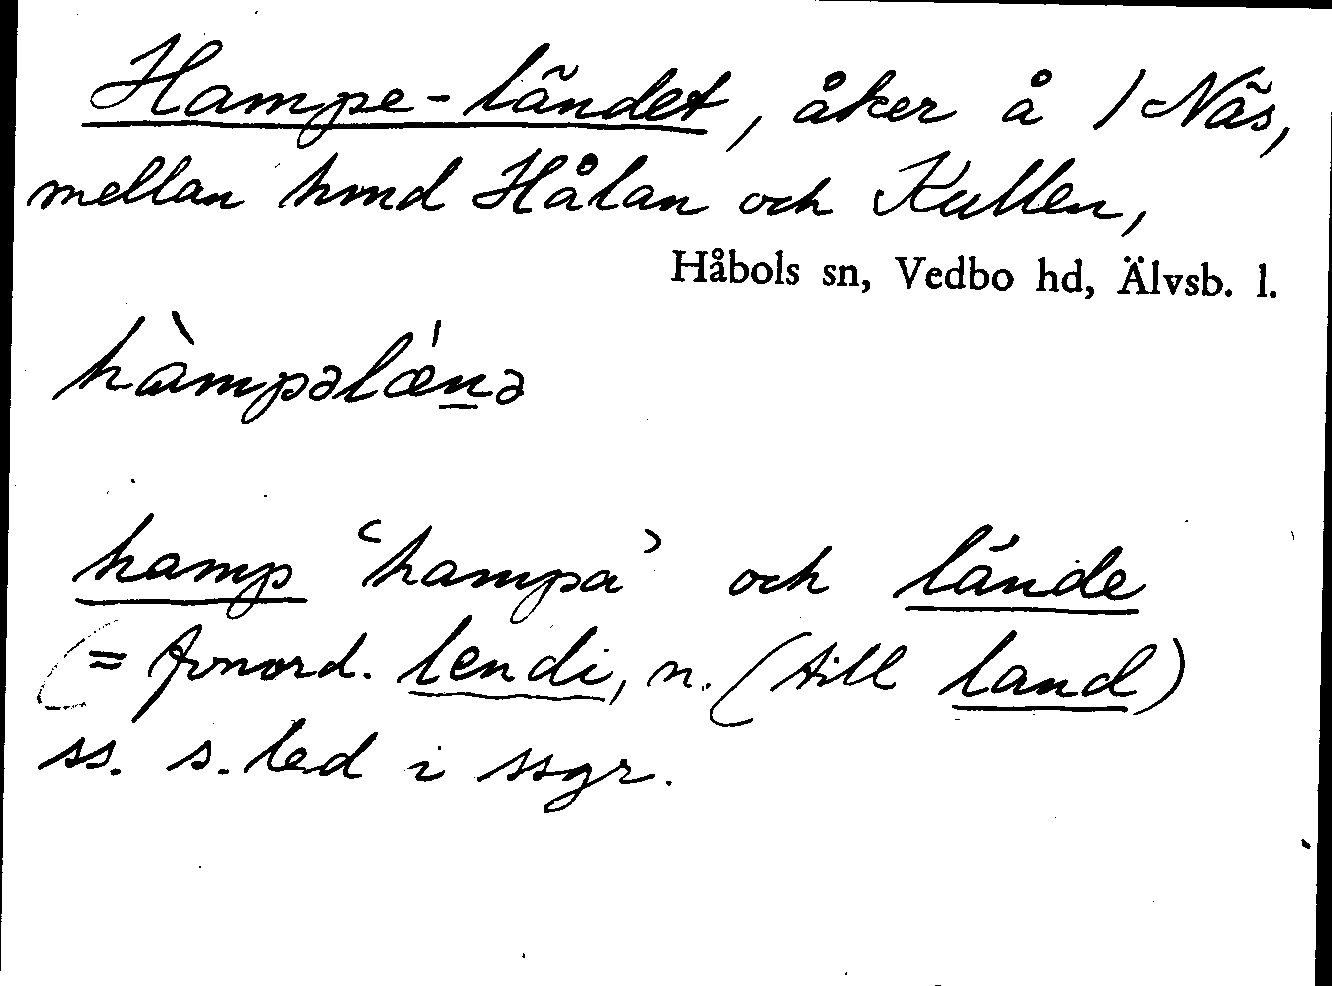 Hampe-ländet, åker å 1 Näs,
mellan hmd Hålan och Kullen,
Håbols sn, Vedbo hd, Älvsb. l.
hàmpəlǽnə
hamp ‘hampa’ och lände
(= fvnord. lendi, n. (till land)
ss. s. led i ssgr.